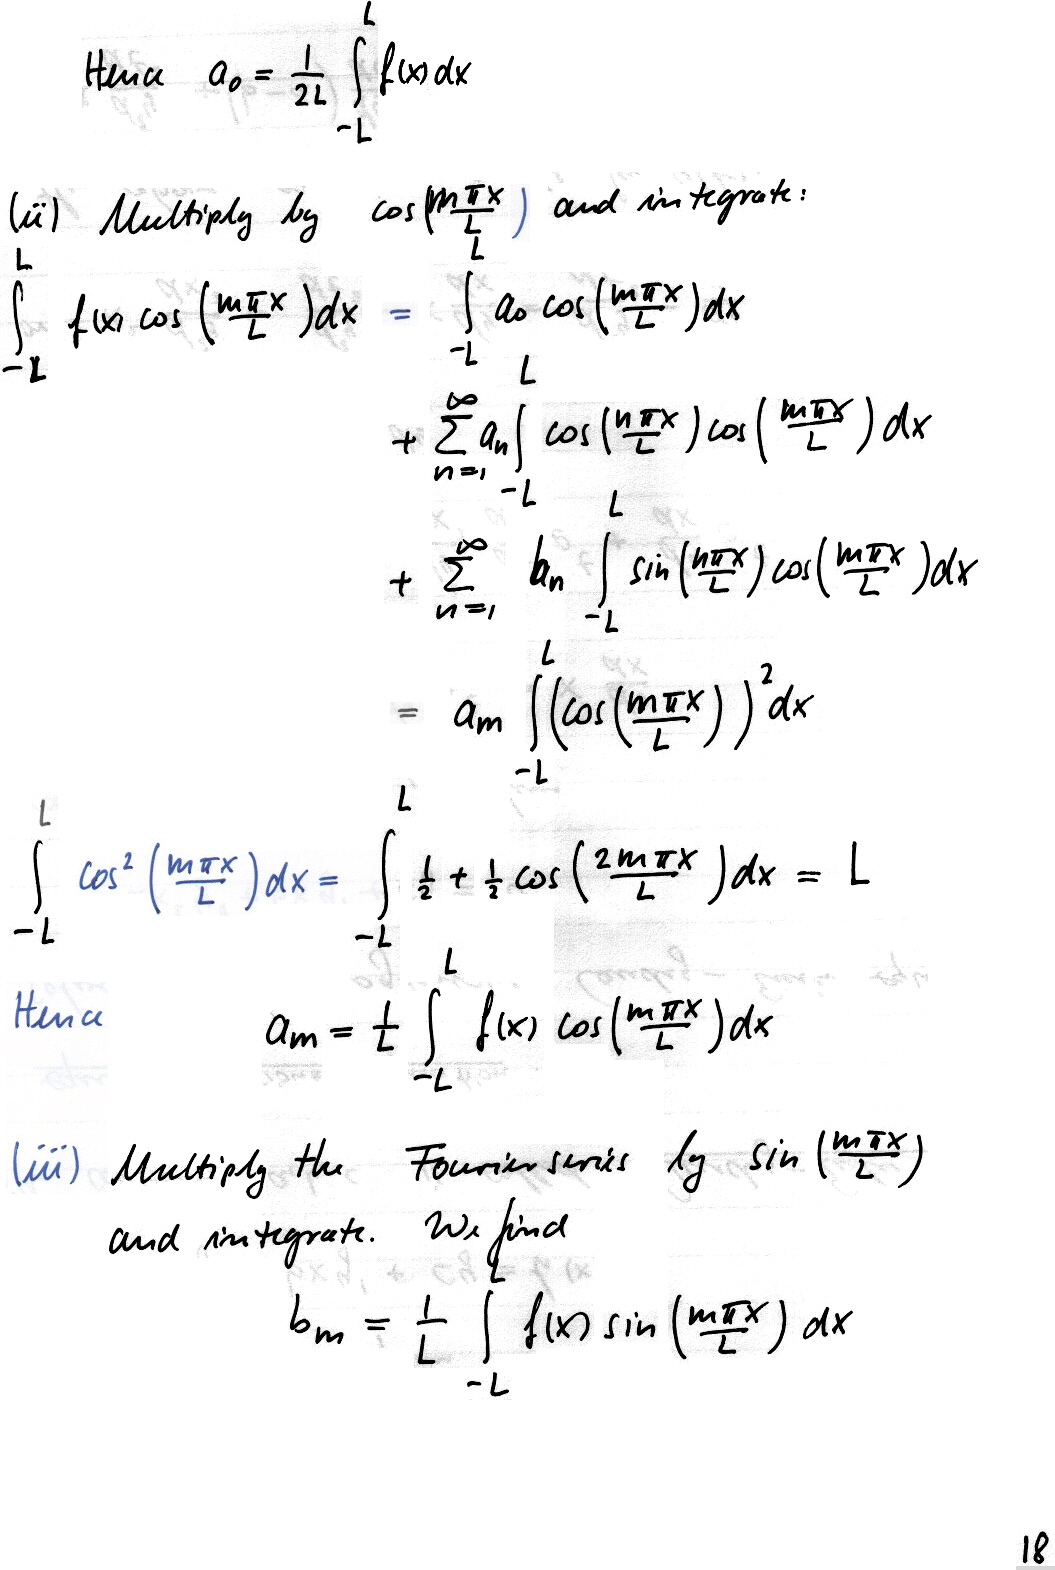 Hence a₀ = 1/2L ∫_{-L}^{L} f(x) dx
(ii) Multiply by cos(mπx/L) and integrate:
∫_{-L}^{L} f(x) cos(mπx/L) dx = ∫_{-L}^{L} a₀ cos(mπx/L) dx
+ ∑_{n=1}^{∞} aₙ ∫_{-L}^{L} cos(nπx/L) cos(mπx/L) dx
+ ∑_{n=1}^{∞} bₙ ∫_{-L}^{L} sin(nπx/L) cos(mπx/L) dx
= aₘ ∫_{-L}^{L} (cos(mπx/L))² dx
∫_{-L}^{L} cos²(mπx/L) dx = ∫_{-L}^{L} 1/2 + 1/2 cos(2mπx/L) dx = L
Hence aₘ = 1/L ∫_{-L}^{L} f(x) cos(mπx/L) dx
(iii) Multiply the Fourier series by sin(mπx/L)
and integrate. We find
bₘ = 1/L ∫_{-L}^{L} f(x) sin(mπx/L) dx
18